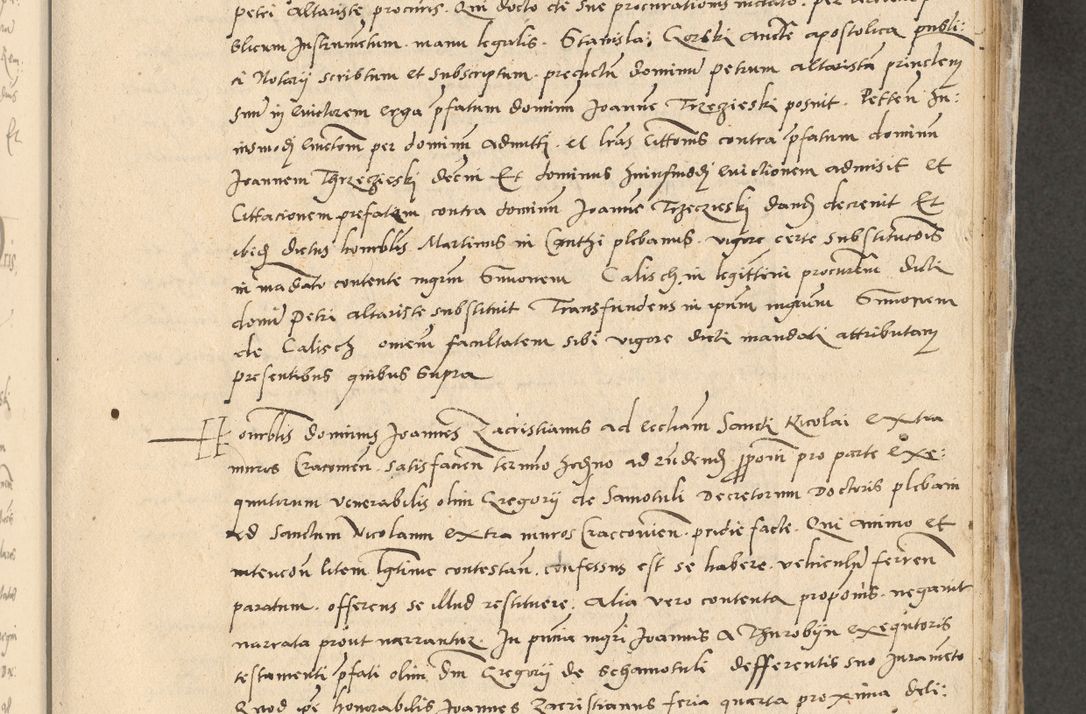 petri altariste procuris. Qui docto de sue procurationis
blicum Instrumentum. manu legalis. Stanislai Gorski aucte apostolica publi:
ci Notarij scribtum et subscriptum. predictum dominum petrum altaristam principem
suum in evictorem erga pfatum dominum Joannem Trzeczieski posuit. Petten hu:
iusmodj evictorem per dominum admitti. et lras Cittonis contra pfatum dominum
Joannem Thrzeczieskj decerni Et dominus huiusmodj evictionem admisit et
Cittacionem prefatam contra dominum Joannem Trzeczieskj dandam decrevit Et
ibidem dictus honorblis Martinus in Canthi plebanus. vigore certe substitucois
in mandato contente mgrm Simonem Calisch. in legittimum procurem dicti
domini Petri altariste substituit Transfundens in ipsum mgrum Simonem
de Calisch omem facultatem sibi vigore dicti mandati attributam
presentibus quibus supra
Honorblis dominus Joannes Zacristianus ad ecclesiam Sancti Nicolai extra
muros Cracovien. satisfacien termino hodierno ad rndendum propoin pro parte exe:
quutorum venerabilis olim Gregorij de Samotuli Decretorum Doctoris plebani
ad Sanctum Nicolaum extra muros Craccovien. pridie facte. Qui animo et
intencon litem lgtime contestan. confessus est se habere. vehiculum ferren
paratum. offerens se illud restituere. Alia vero contenta propoins. negavit
narrata prout narrantur. In pntia mgri Joannis a Thurobijn exequtoris
testamenti pfati olim dni Gregorij de Schamotuli defferentis suo Juramento
Quod ipse honorabilis Joannes Zacristianus feria quarta proxima deli: